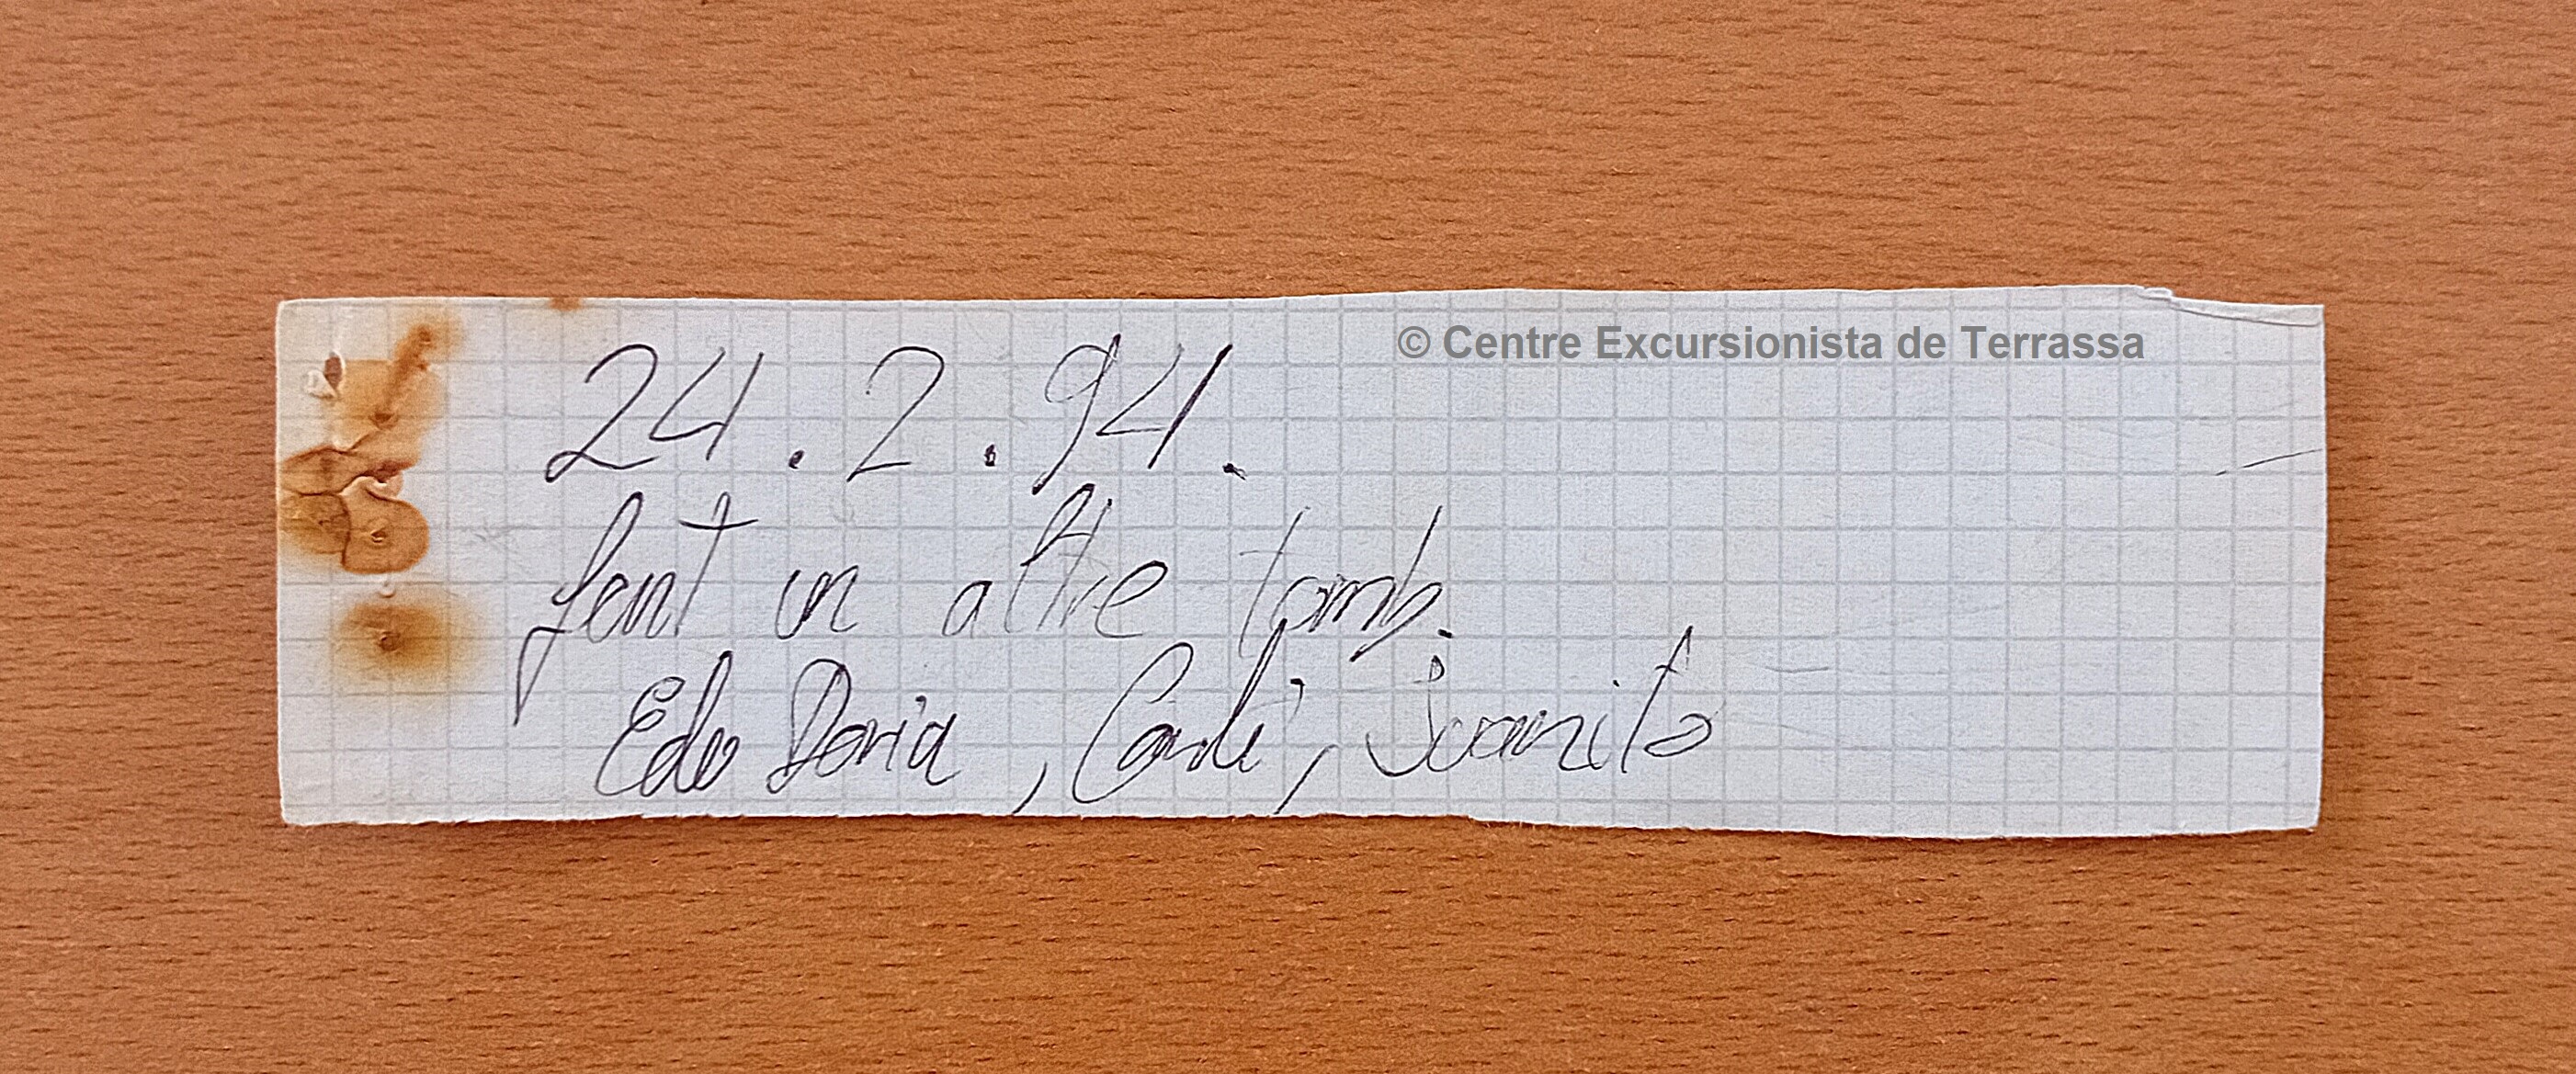 © Centre Excursionista de Terrassa
24.2.94.
fent un altre tomb.
Edu Doria, Carli, Juanito